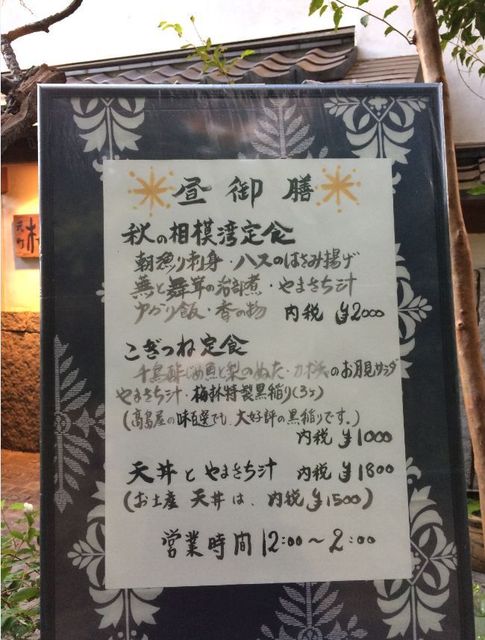 昼御膳
秋の相模湾定食
朝漁り刺身・ハスのはさみ揚げ
蕪と舞茸の治部煮・やまさち汁
香の物 内税 ¥2000
こぎつね定食
のお月見サラダ
やまさち汁・梅林特製黒稲り(3ケ)
(髙島屋の味百選でも、大好評の黒稲りです。)
内税 ¥1000
天丼とやまさち汁 内税 ¥1800
(お土産 天丼は、内税¥1500)
営業時間 12:00〜2:00
元町